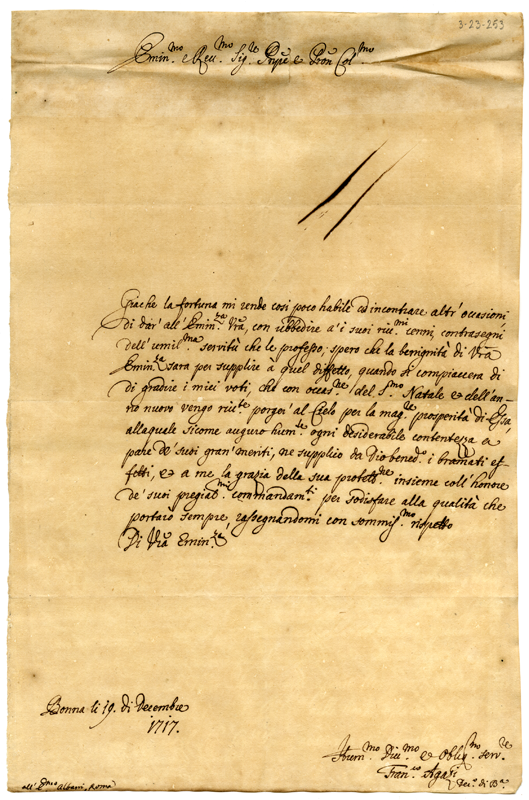 3-23-253
Emin.mo e Rev.mo Sig.re Pnpe e Pron Col.mo
Giache la fortuna mi rende cosi poco habile ad incontrare altr'occasioni
di dar' all'Emin.za Vra, con ubbedire a'i suoi riv.mi cenni, contrasegni
dell'umil.ma servitù che le professo; spero che la benignità di Vra
Emin.za sara per supplire à quel diffetto, quando si compiacerà di
di gradire i miei voti, che con occas.ne del S.mo Natale & dell'an-
no nuovo vengo riv.te porger' al Cielo per la mag.re prosperità di Essa,
allaquele sicome auguro hum.te ogni desiderabile contentezza a
pare de' suoi gran' meriti, ne supplico da Dio bened.o i bramati ef-
fetti, & a me la grazia della sua protett.ne insieme coll'honore
de' suoi pregiat.mi commandam.ti per sodisfare alla qualità che
portarò sempre, rassegnandomi con sommis.mo rispetto
Di Vra Emin.za
Bonna li 19. di Decembre
1717.
Hum.mo Div.mo e Oblig.mo serv.re
Fran.co Agazi
all'Emo Albani, Roma